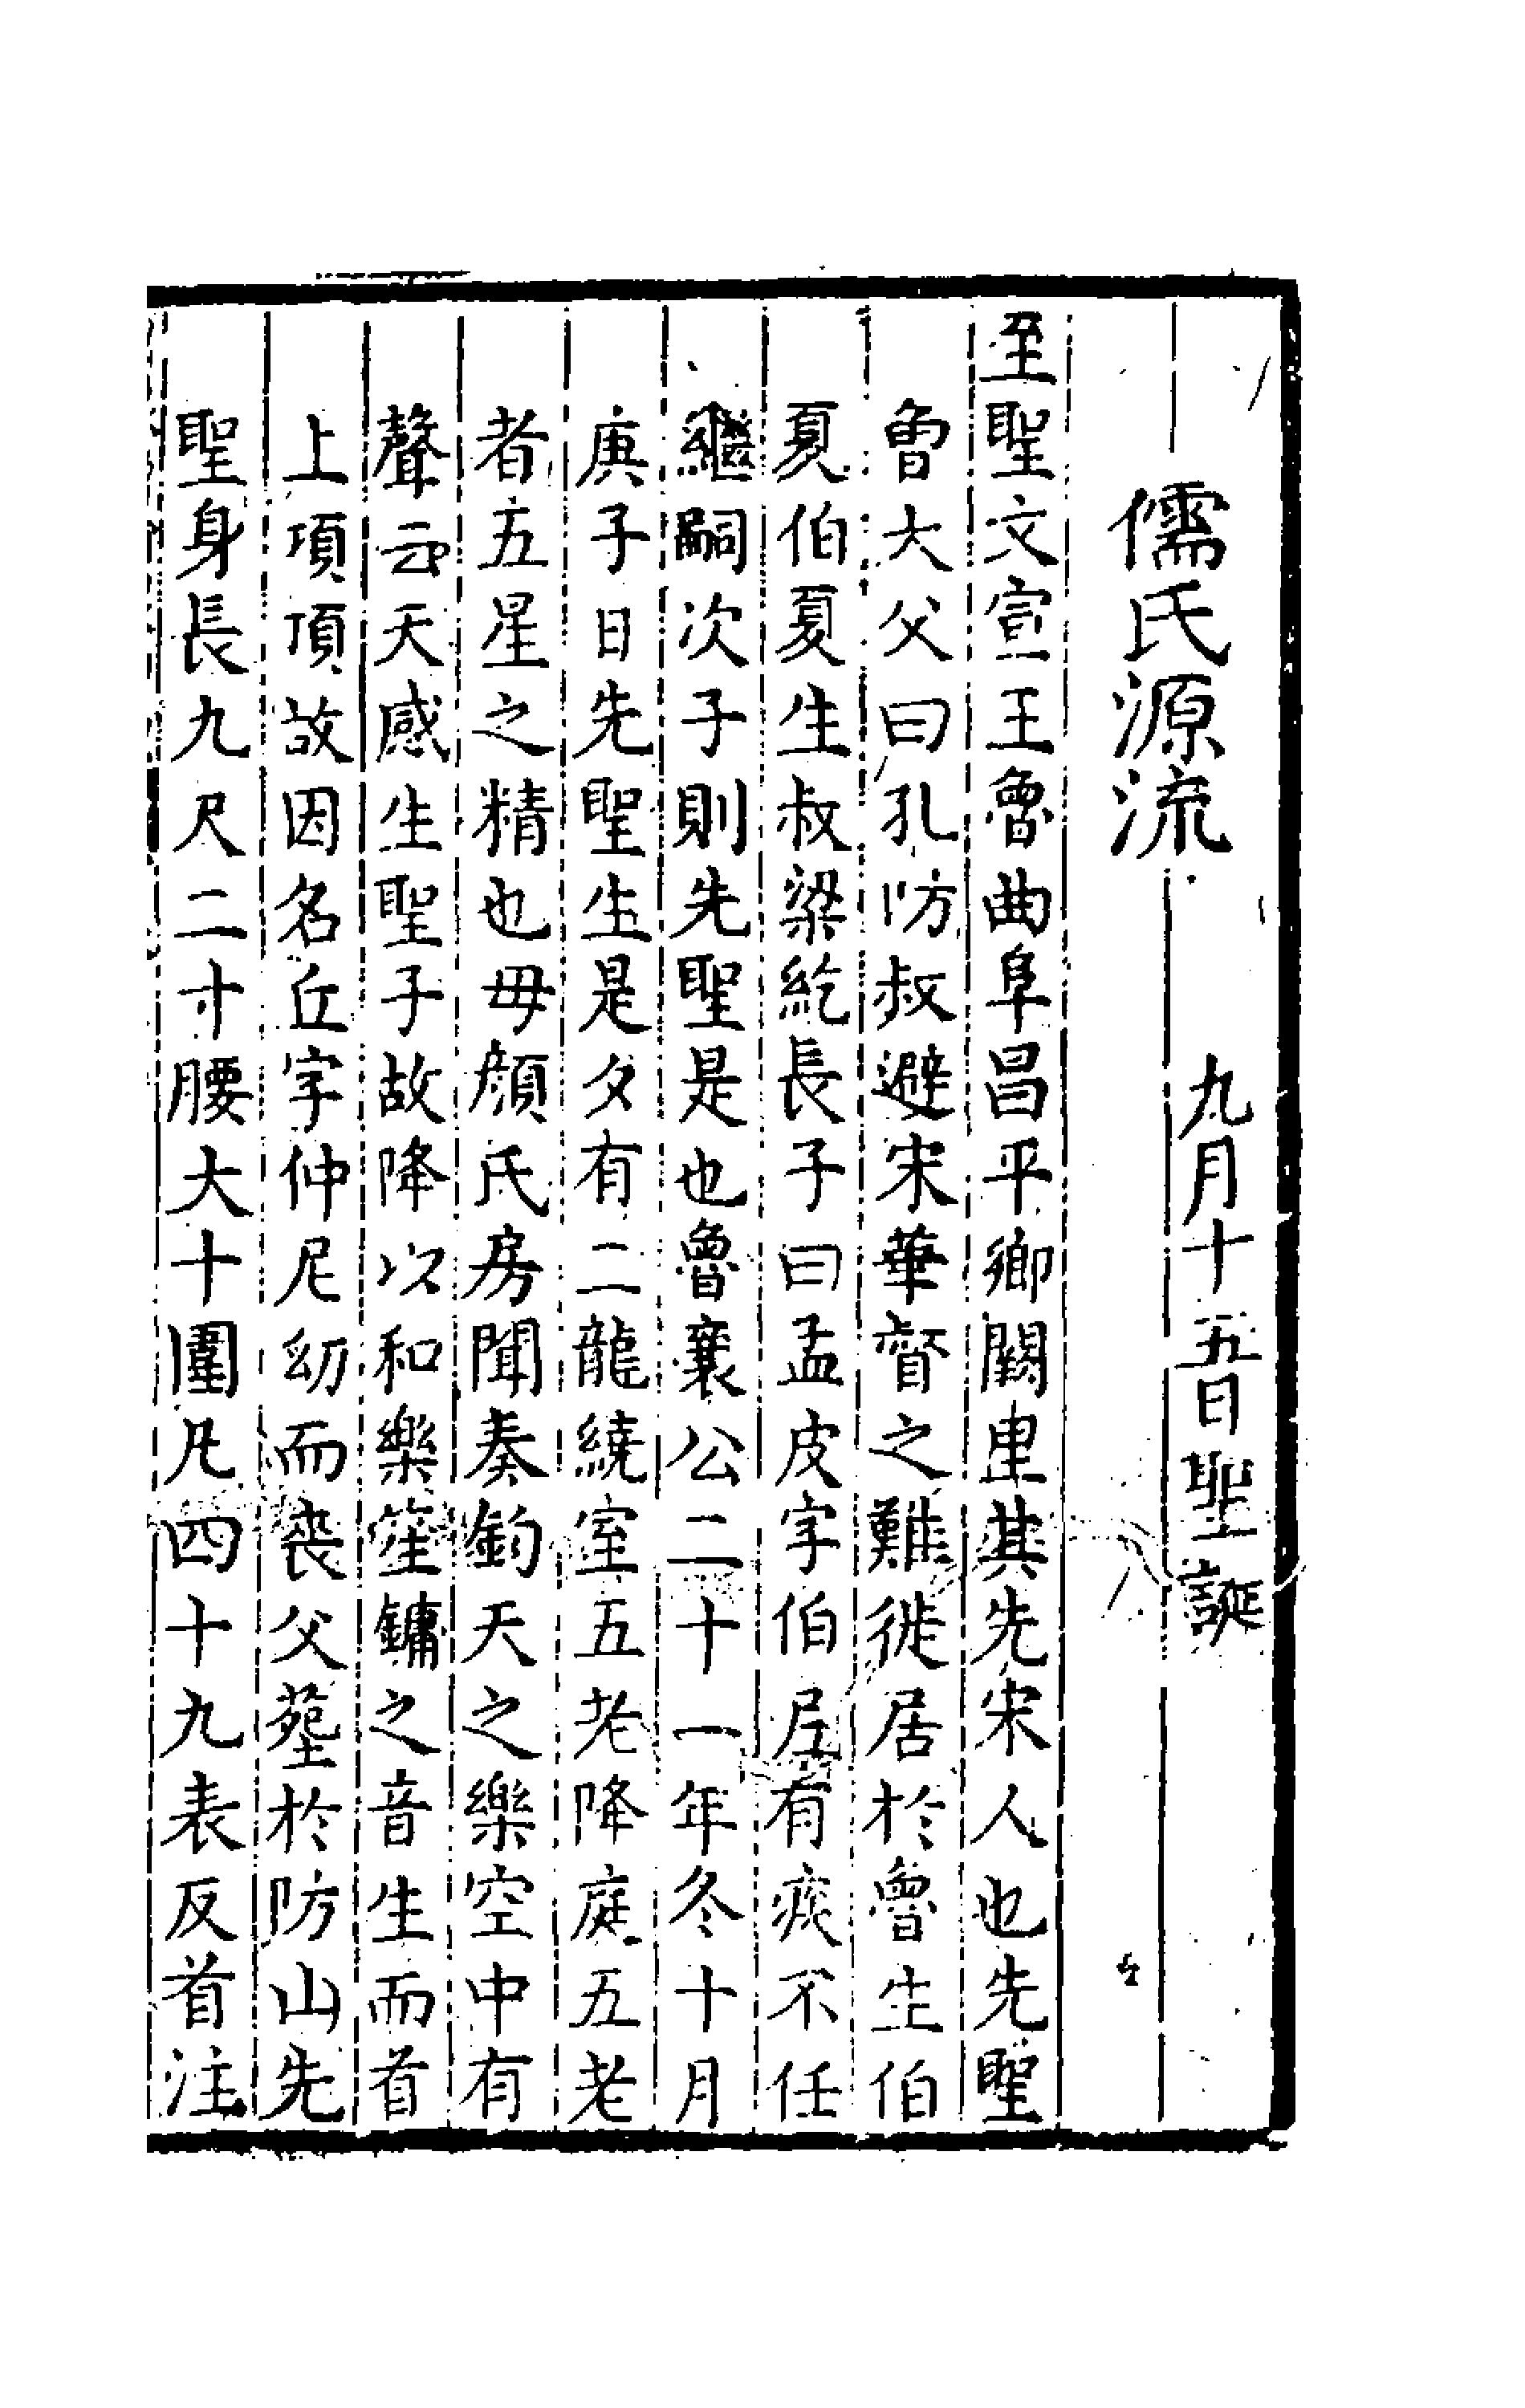 九月十五日聖誕
儒氏源流
至聖文宣王魯曲阜昌平鄉闕里其先宋人也先聖
曾大父曰孔防叔避宋華督之難徙居於魯生伯
夏伯夏生叔梁紇長子曰孟皮字伯尼有疾不任
繼嗣次子則先聖是也魯襄公二十一年冬十月
庚子日先聖生是夕有二龍繞室五老降庭五老
者五星之精也毋顏氏房聞奏鈞天之樂空中有
聲云天感生聖子故降以和樂笙鏞之音生而首
上項頂故因名丘字仲尼幼而喪父塟於防山先
聖身長九尺二寸腰大十圍凡四十九表反首注